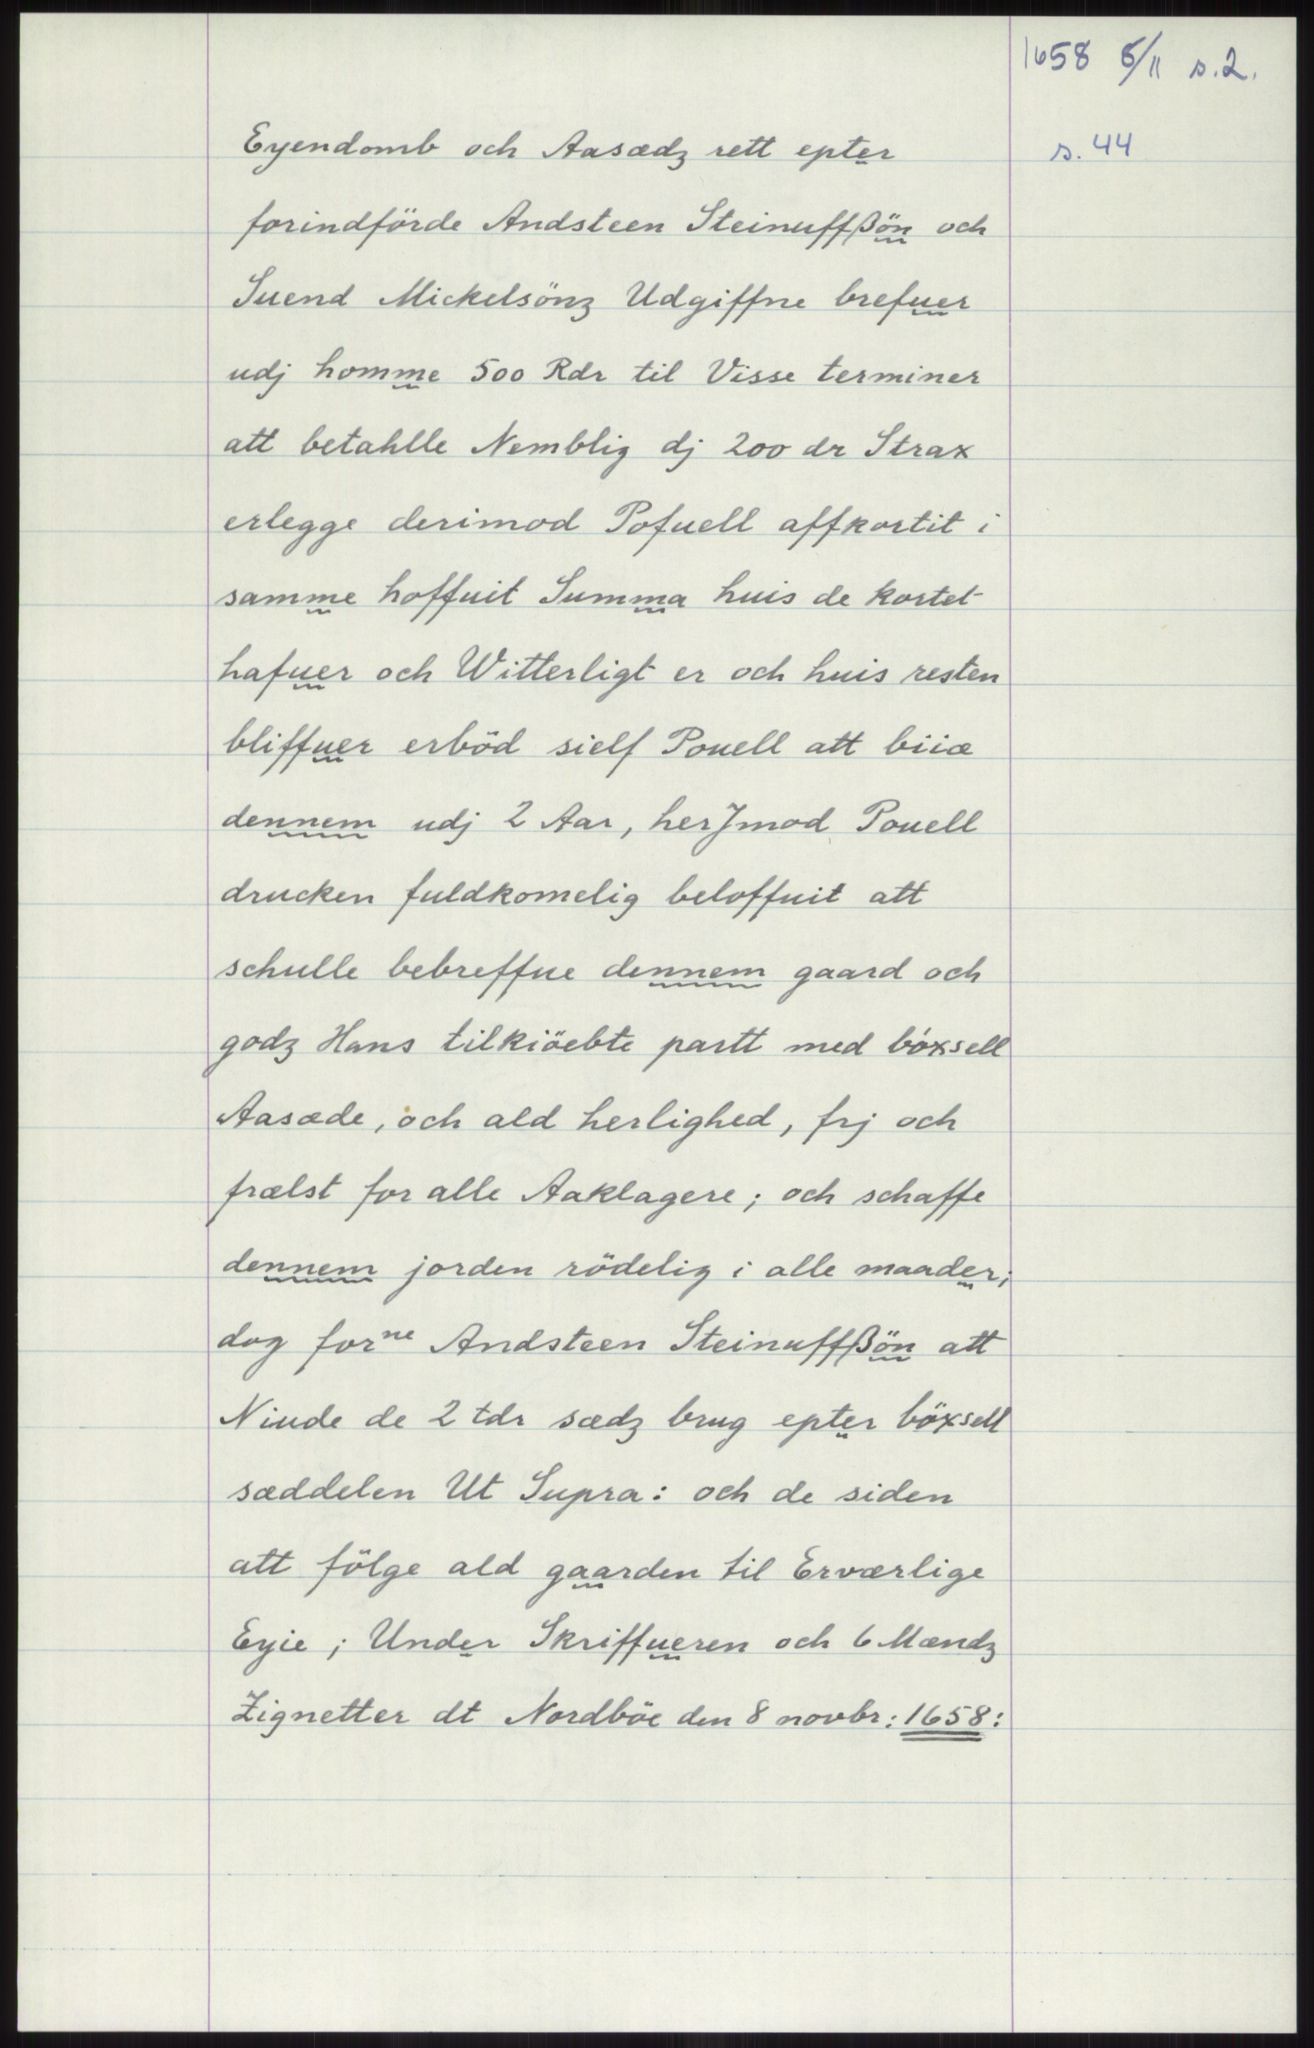 1658 8/11 s.2.
s. 44
Eyendomb och Aasædz rett epter
forindförde Andsteen Steinuffßön och
Suend Mickelsönz Udgiffne brefuer
udj homme 500 Rdr til Visse terminer
att betahlle Nemblig dj 200 dr Strax
erlegge derimod Pofuell affkortit i
samme hoffuit Summa huis de kortet
hafuer och Witterligt er och huis resten
bliffuer erböd sielf Pouell att biiæ
dennem udj 2 Aar, herJmod Pouell
drucken fuldkomelig beloffuit att
schulle bebreffue dennem gaard och
godz Hans tilkiöebte partt med böxsell
Aasæde, och ald herlighed, frj och
frælst for alle Aaklagere; och schaffe
dennem jorden rödelig i alle maader;
dog forne Andsteen Steinuffßön att
Niude de 2 tdr sædz brug epter böxsell
sæddelen Ut Supra: och de siden
att fölge ald gaarden til Erværlige
Eyie; Under Skriffueren och 6 Mændz
Zignetter dt Nordböe den 8 novbr: 1658: